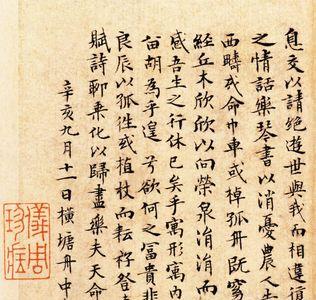 息交以請絕遊世與我而相違復
之情話樂琴書以消憂農人告
西疇或命巾車或棹孤舟既窈
經丘木欣欣以向榮泉涓涓而
感吾生之行休已矣乎寓形寓內
留胡為乎遑兮欲何之富貴非
良辰以孤往或植杖而耘籽登
賦詩聊乘化以歸盡樂夫天命
辛亥九月十一日橫塘舟中
儀周珍藏